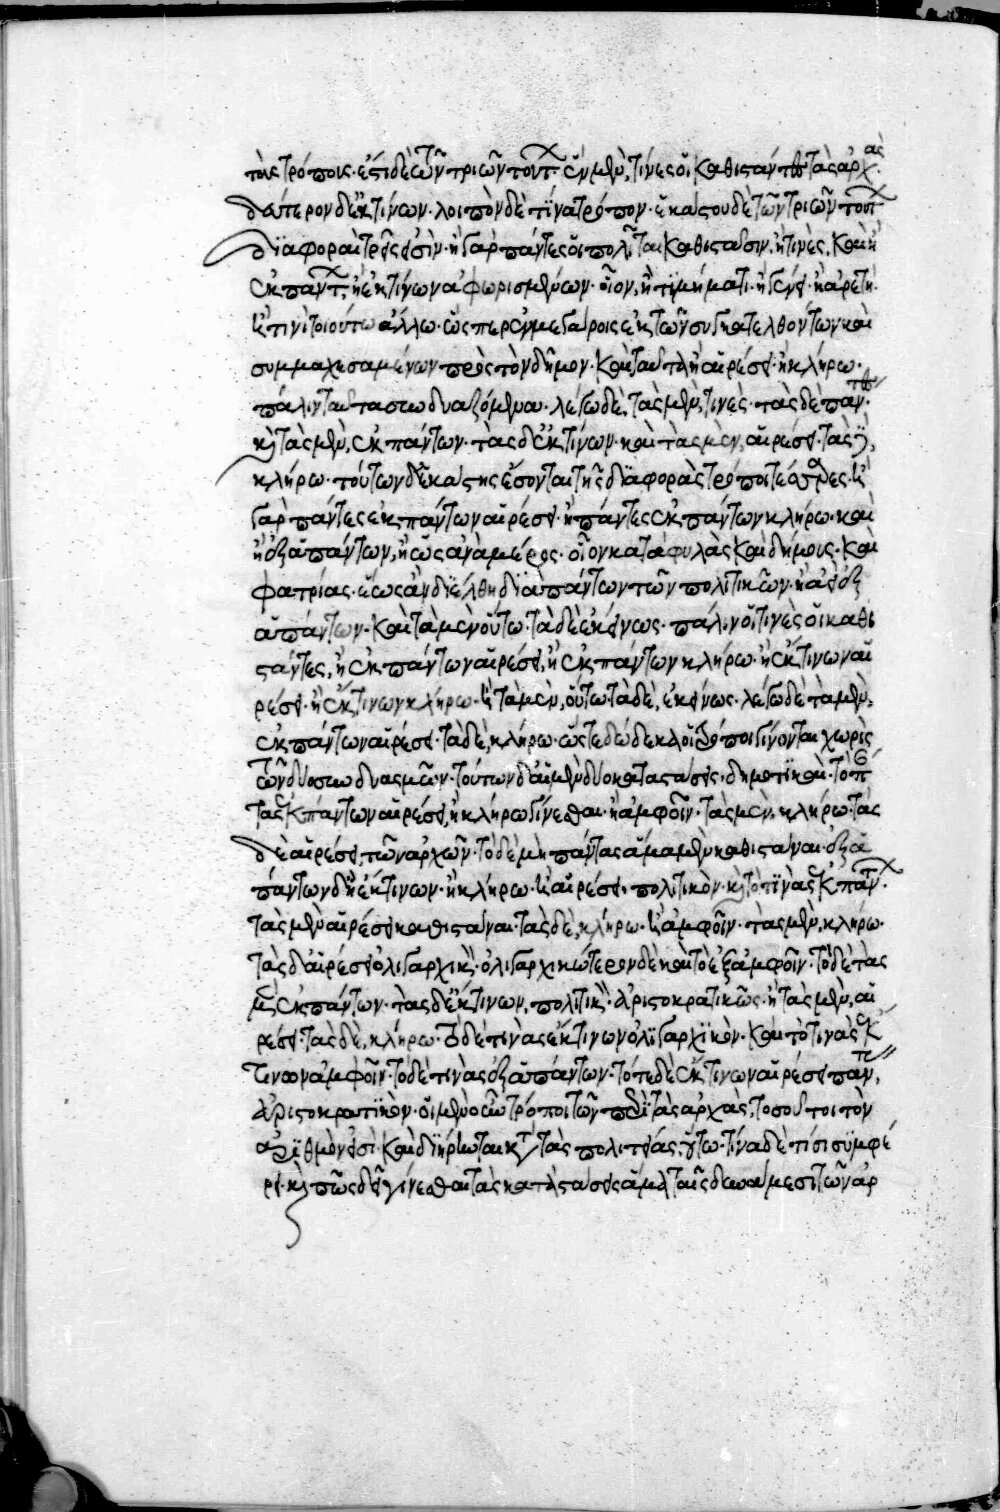 τοὺς τρόπους. ἔστι δὲ τῶν τριῶν τούτων. ἓν μὲν, τίνες οἱ καθιστάντες τὰς ἀρχάς.
δεύτερον δ' ἐκ τίνων. λοιπὸν δὲ τίνα τρόπον. ἑκάστου δὲ τῶν τριῶν τούτων
διαφοραὶ τρεῖς εἰσὶν. ἢ γὰρ πάντες οἱ πολῖται καθιστᾶσιν, ἢ τινὲς. καὶ ἢ
ἐκ πάντων, ἢ ἐκ τίνων ἀφωρισμένων. οἷον, ἢ τιμήματι. ἢ γένει. ἢ ἀρετῆ.
ἤ τινι τοιούτω ἄλλω. ὥσπερ ἐν μεγάροις ἐκ τῶν συγκατελθόντων καὶ
συμμαχησαμένων πρὸς τὸν δῆμον. καὶ ταῦτα ἢ αἱρέσει. ἢ κλήρω.
πάλιν ταῦτα συνδυαζόμενα. λέγω δὲ, τὰς μὲν, τινὲς. τὰς δὲ πάντες.
καὶ τὰς μὲν, ἐκ πάντων. τὰς δ' ἐκ τίνων. καὶ τὰς μὲν, αἱρέσει. τὰς δὲ,
κλήρω. τούτων δ' ἑκάστης ἔσονται τῆς διαφορᾶς τρόποι τέσσαρες. ἢ
γὰρ πάντες ἐκ πάντων αἱρέσει. ἢ πάντες ἐκ πάντων κλήρω. καὶ
ἢ ἐξ ἁπάντων, ἢ ὡς ἀνὰ μέρος. οἷον κατὰ φυλὰς καὶ δήμους. καὶ
φατρίας. ἕως ἂν διέλθη διὰ πάντων τῶν πολιτικῶν. ἢ ἀεὶ ἐξ
ἁπάντων. καὶ τὰ μὲν οὕτω. τὰ δὲ ἐκείνως. πάλιν οἱ τινὲς οἱ καθι
στάντες, ἢ ἐκ πάντων αἱρέσει, ἢ ἐκ πάντων κλήρω. ἢ ἐκ τίνων αἱ
ρέσει. ἢ ἐκ τίνων κλήρω. ἢ τὰ μὲν, οὕτω τὰ δὲ, ἐκείνως. λέγω δὲ τὰ μὲν,
ἐκ πάντων αἱρέσει. τὰ δὲ, κλήρω. ὥστε δώδεκα οἱ τρόποι γίνονται χωρὶς
τῶν δύο συνδυασμῶν. τούτων δ' αἱ μὲν δύο καταστάσεις. δημοτικαὶ. τὸ πάν
τας ἐκ πάντων αἱρέσει, ἢ κλήρω γίνεσθαι. ἢ ἀμφοῖν. τὰς μὲν, κλήρω. τὰς
δὲ αἱρέσει, τῶν ἀρχῶν. τὸ δὲ μὴ πάντας ἅμα μὲν καθιστάναι. ἐξ ἁ
πάντων δ' ἢ ἐκ τίνων. ἢ κλήρω. ἢ αἱρέσει. πολιτικὸν. καὶ τὸ τινὰς ἐκ πάντων.
τὰς μὲν αἱρέσει καθιστάναι. τὰς δὲ, κλήρω. ἢ ἀμφοῖν. τὰς μὲν, κλήρω.
τὰς δ' αἱρέσει ὀλιγαρχικὴ. ὀλιγαρχικώτερον δὲ καὶ τὸ ἐξ ἀμφοῖν. τὸ δὲ τὰς
μὲν ἐκ πάντων. τὰς δ' ἐκ τινων, πολιτικὴ. ἀριστοκρατικῶς. ἢ τὰς μὲν, αἱ
ρέσει. τὰς δὲ, κλήρω. τὸ δὲ τινὰς ἐκ τινων ὀλιγαρχικὸν. καὶ τὸ τινὰς ἐκ
τινων ἀμφοῖν. τὸ δὲ τινὰς ἐξ ἁπάντων. τό τε δὲ ἐκ τινων αἱρέσει πάντας,
ἀριστοκρατικὸν. οἱ μὲν οὖν τρόποι τῶν περὶ τὰς ἀρχὰς, τοσοῦτοι τὸν
ἀριθμόν εἰσι. καὶ διήρηνται κατὰ τὰς πολιτείας, οὕτω. τίνα δὲ τίσι συμφέ
ρει. καὶ πῶς δεῖ γίνεσθαι τὰς καταστάσεις ἅμα ταῖς δυνάμεσι τῶν ἀρ